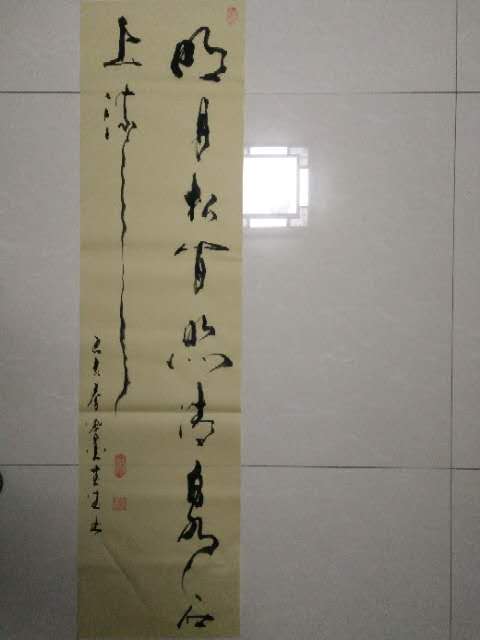 明月松间照清泉石
上流
己亥春